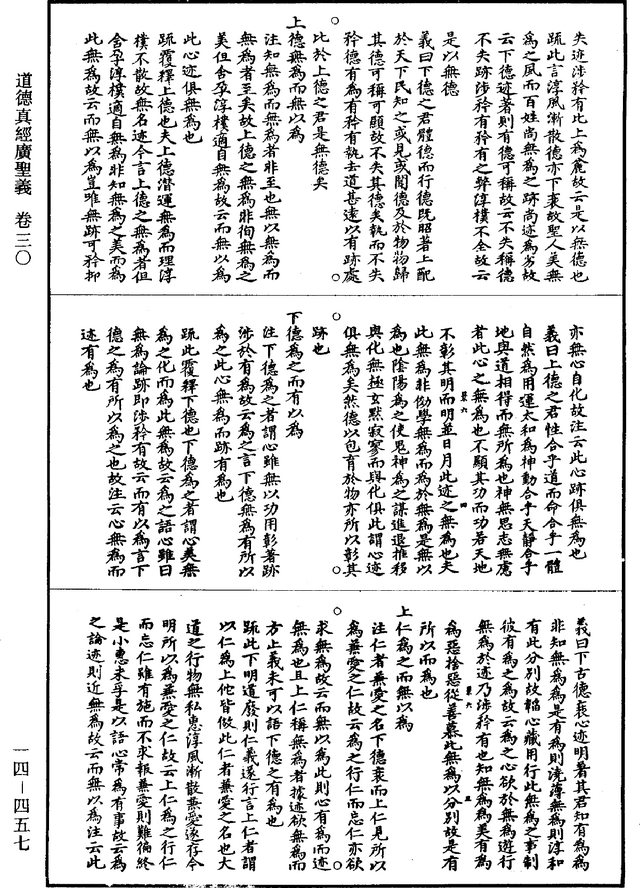 道德真經廣聖義 卷三〇
一四—四五七
失迹涉矜有比上為麄故云是以無德也
疏此言淳風漸散德亦下衰故聖人美無
為之風而百姓尚無為之跡尚迹為劣故
云下德迹著則有德可稱故云不失稱德
不失跡涉矜有矜有之弊淳樸不全故云
是以無德
義曰下德之君體德而行德既昭著上配
於天下民知之或見或聞德及於物物歸
其德可稱可顯故不失其德矣執而不失
矜德有為有矜有執去道甚遠以有跡處
比於上德之君是無德矣
上德無為而無以為
注知無為而無為者非至也無以無為而
無為者至矣故上德之無為非徇無為之
美但含孕淳樸適自無為故云而無以為
此心迹俱無為也
疏覆釋上德也夫上德潛運無為而理淳
樸不散故無名迹今言上德之無為者但
含孕淳樸適自無為非知無為之美而為
此無為故云而無以為豈唯無跡可矜抑
亦無心自化故注云此心跡俱無為也
義曰上德之君性合乎道而命合乎一體
自然為用運太和為神動合乎天靜合乎
地與道相得而無所為也神無思志無慮
者此心之無為也不顯其功而功若天地
不彰其明而明並日月此迹之無為也夫
此無為非俲學無為而為於無為是無以
為也陰陽為之使鬼神為之謀進退推移
與化無極玄默寂寥而與化俱此謂心迹
俱無為矣然德以包育於物亦所以彰其
跡也
下德為之而有以為
注下德為之者謂心雖無以功用彰著跡
涉於有為故云為之言下德無為有所以
為之此心無為而跡有為也
疏此覆釋下德也下德為之者謂心美無
為之化而為此無為故云為之語心雖曰
無為論跡即涉矜有故云而有以為言下
德之為有所以為之也故注云心無為而
迹有為也
義曰下古德衰心迹明著其君知有為為
非知無為為是有為則澆薄無為則淳和
有此分別故韜心藏用行此無為之事制
彼有為之為故云為之心欲於無為遊行
無為於迹乃涉矜有也知無為為美有為
為惡捨惡從善慕此無為以分別故是有
所以而為也
上仁為之而無以為
注仁者兼愛之名下德衰而上仁見所以
為兼愛之仁故云為之行仁而忘仁亦欲
求無為故云而無以為此則心有為而迹
無為也且上仁稱無為者據迹欲無為而
方止義未可以語下德之有為也
疏此下明道廢則仁義遂行言上仁者謂
以仁為上他皆倣此仁者兼愛之名也大
道之行物無私惠淳風漸散兼愛遂存今
明所以為兼愛之仁故云上仁為之行仁
而忘仁雖有施而不求報兼愛則難徧終
是小惠未孚是以語心常為有事故云為
之論迹則近無為故云而無以為注云此